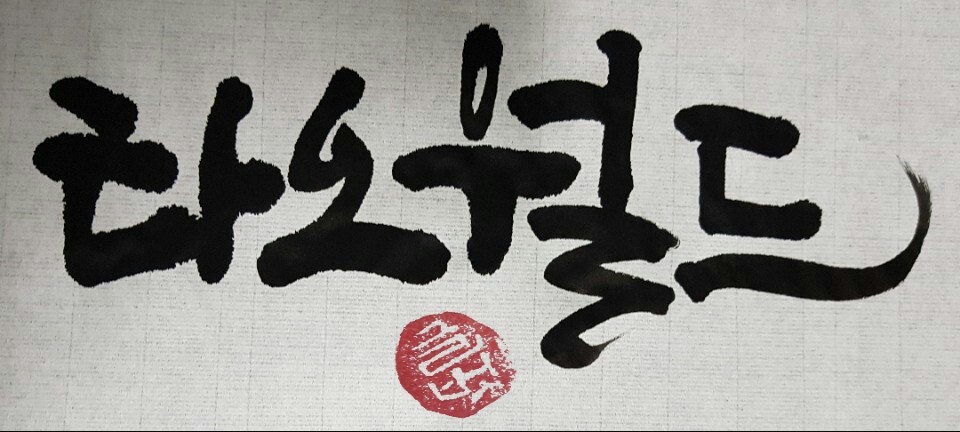 타오월드